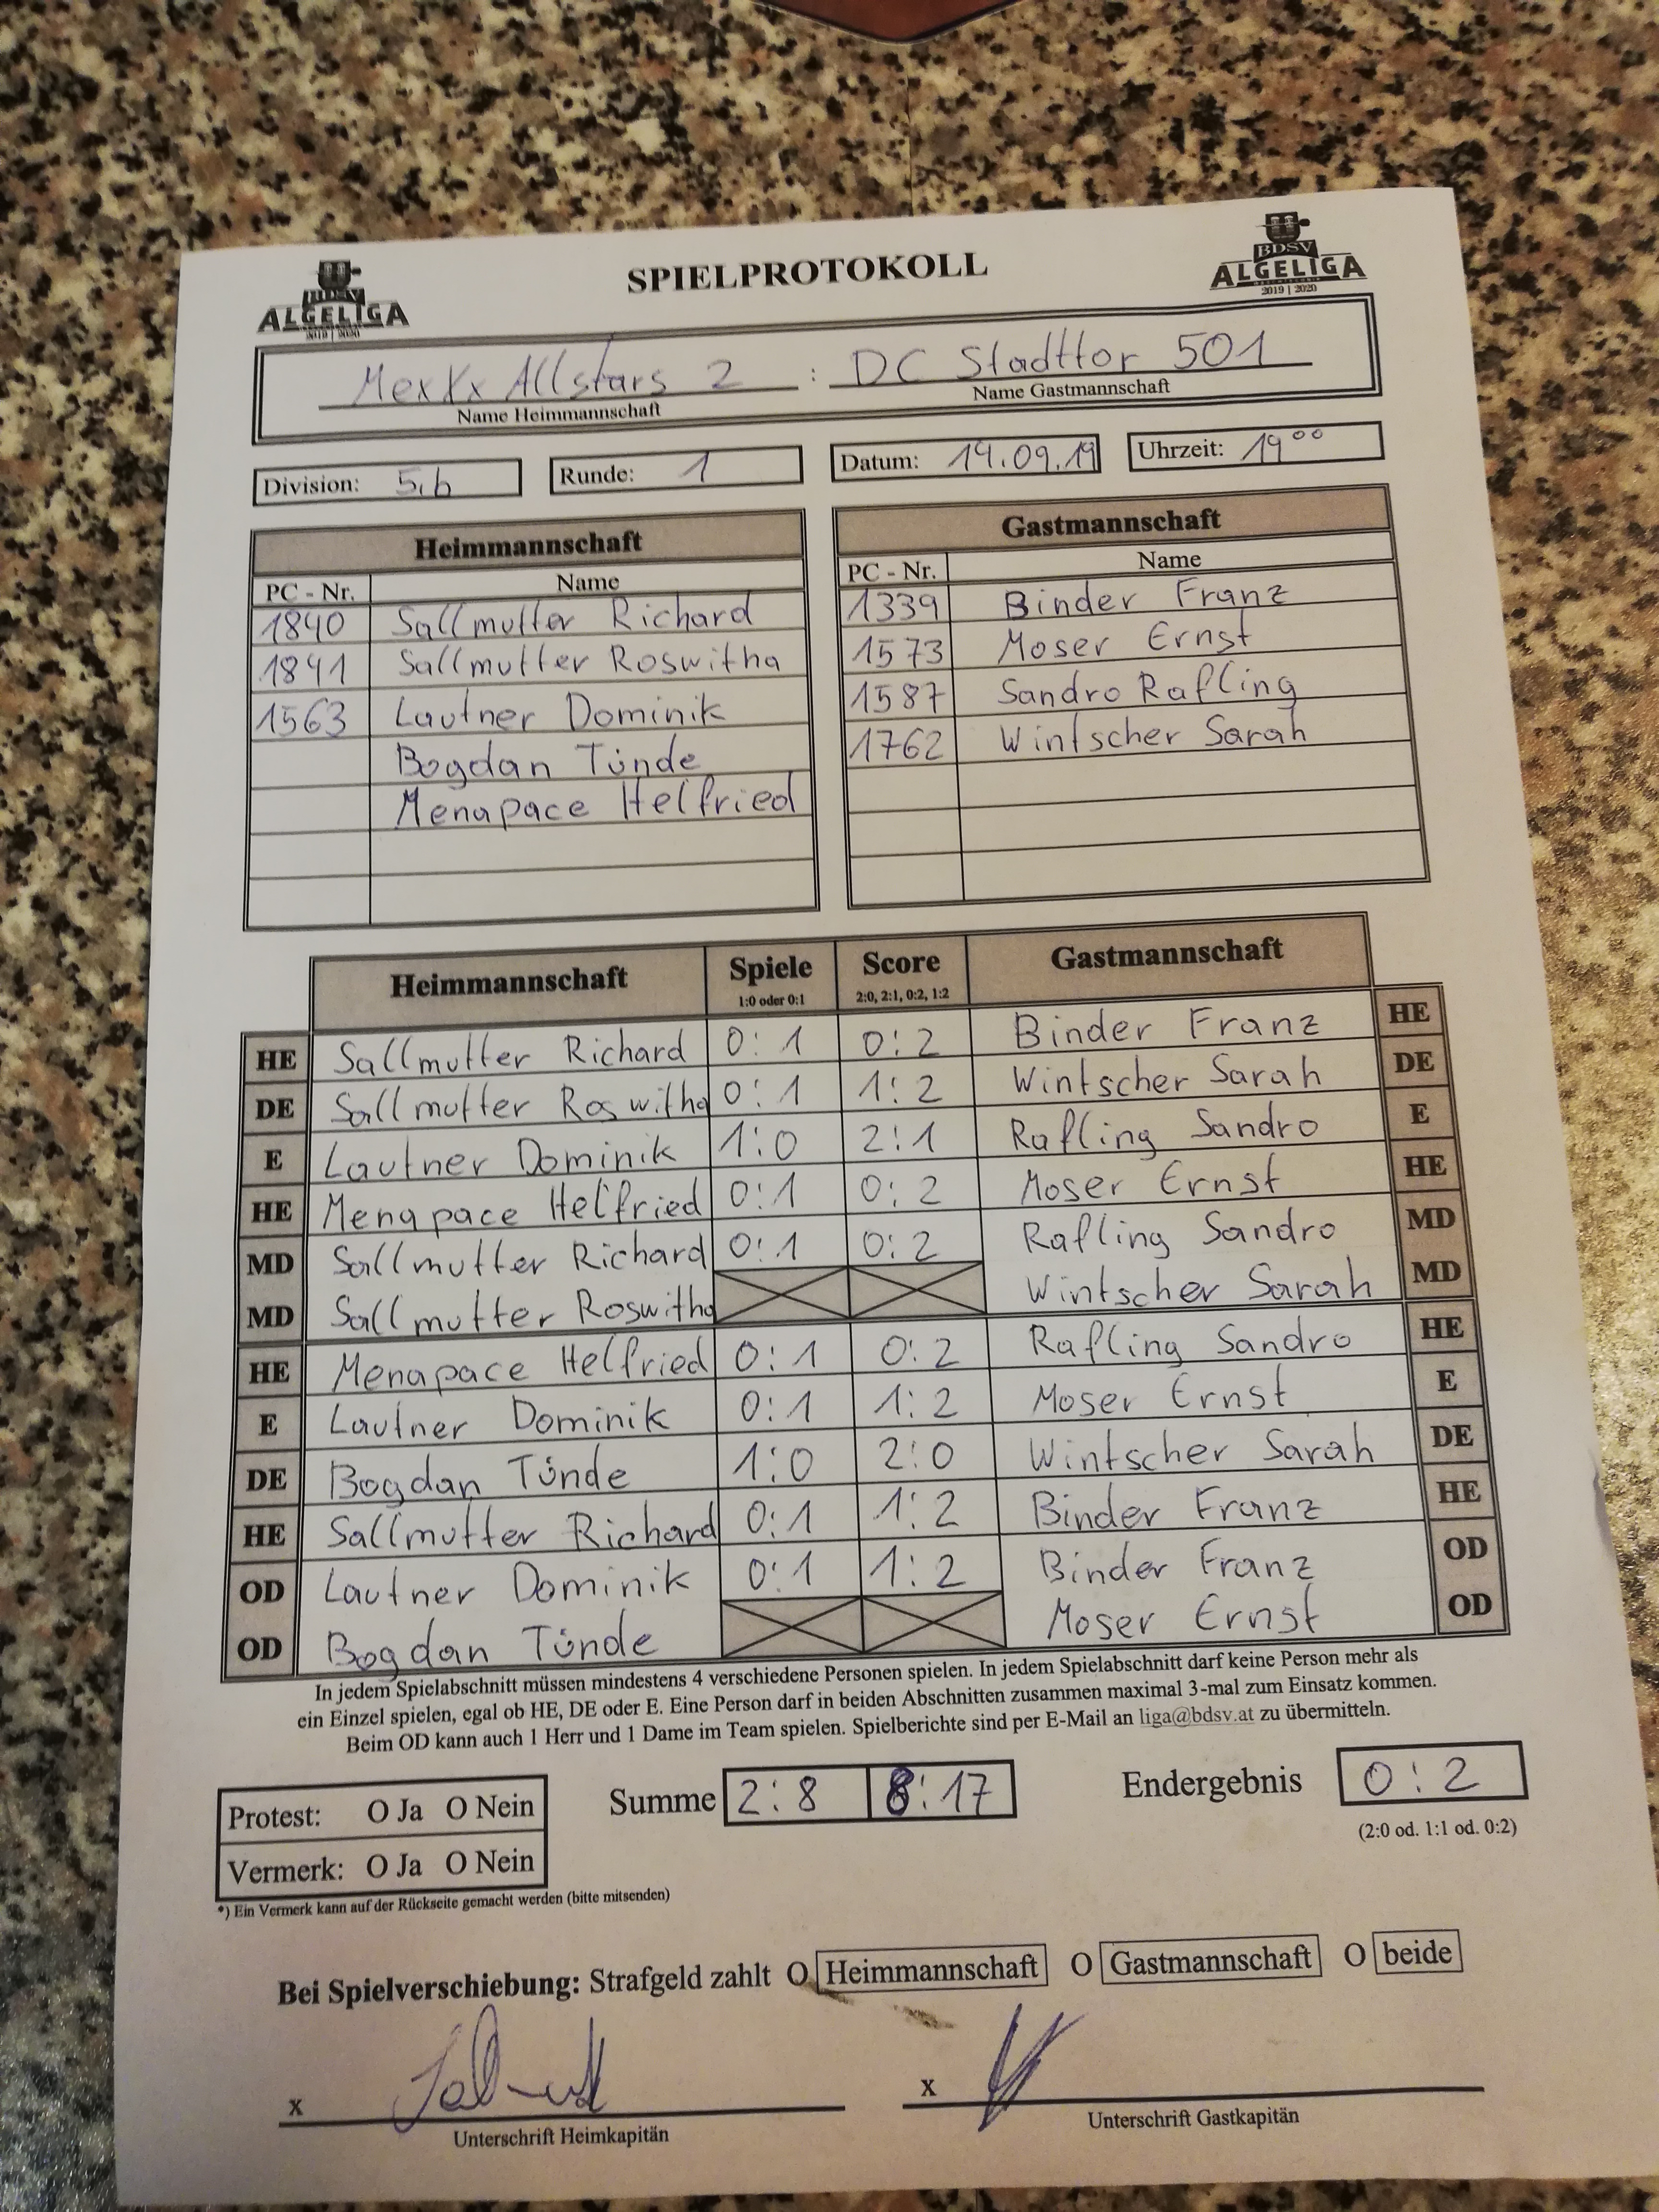 BDSV
ALGELIGA
2019 | 2020
SPIELPROTOKOLL
BDSV
ALGELIGA
2019 | 2020
MexXx Allstars 2 : DC Stadttor 501
Name Heimmannschaft Name Gastmannschaft
Division: 5.b Runde: 1 Datum: 14.09.19 Uhrzeit: 19 00
Heimmannschaft Gastmannschaft
PC - Nr. Name PC - Nr. Name
1840 Sallmutter Richard 1339 Binder Franz
1841 Sallmutter Roswitha 1573 Moser Ernst
1563 Lautner Dominik 1587 Sandro Rafling
Bogdan Tünde 1762 Wintscher Sarah
Menapace Helfried
Heimmannschaft Spiele Score Gastmannschaft
1:0 oder 0:1 2:0, 2:1, 0:2, 1:2
HE Sallmutter Richard 0:1 0:2 Binder Franz HE
DE Sallmutter Roswitha 0:1 1:2 Wintscher Sarah DE
E Lautner Dominik 1:0 2:1 Rafling Sandro E
HE Menapace Helfried 0:1 0:2 Moser Ernst HE
MD Sallmutter Richard 0:1 0:2 Rafling Sandro MD
MD Sallmutter Roswitha Wintscher Sarah MD
HE Menapace Helfried 0:1 0:2 Rafling Sandro HE
E Lautner Dominik 0:1 1:2 Moser Ernst E
DE Bogdan Tünde 1:0 2:0 Wintscher Sarah DE
HE Sallmutter Richard 0:1 1:2 Binder Franz HE
OD Lautner Dominik 0:1 1:2 Binder Franz OD
OD Bogdan Tünde Moser Ernst OD
In jedem Spielabschnitt müssen mindestens 4 verschiedene Personen spielen. In jedem Spielabschnitt darf keine Person mehr als
ein Einzel spielen, egal ob HE, DE oder E. Eine Person darf in beiden Abschnitten zusammen maximal 3-mal zum Einsatz kommen.
Beim OD kann auch 1 Herr und 1 Dame im Team spielen. Spielberichte sind per E-Mail an liga@bdsv.at zu übermitteln.
Protest: O Ja O Nein Summe 2:8 8:17 Endergebnis 0:2
(2:0 od. 1:1 od. 0:2)
Vermerk: O Ja O Nein
*) Ein Vermerk kann auf der Rückseite gemacht werden (bitte mitsenden)
Bei Spielverschiebung: Strafgeld zahlt O Heimmannschaft O Gastmannschaft O beide
x x
Unterschrift Heimkapitän Unterschrift Gastkapitän